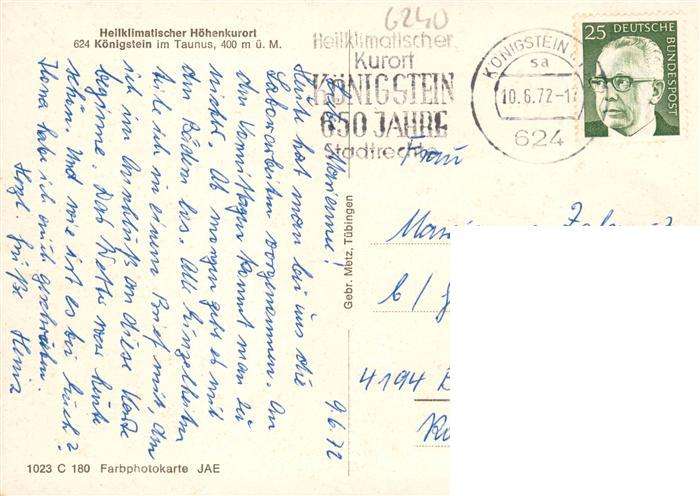 Heilklimatischer Höhenkurort
624 Königstein im Taunus, 400 m ü. M.
6240
Heilklimatischer
Kurort
KÖNIGSTEIN
650 JAHRE
Stadtrechte
KÖNIGSTEIN
sa
10.6.72-1
624
25 DEUTSCHE BUNDESPOST
9.6.72
Marianne!
Heute hat man bei uns die
Laborarbeiten vorgenommen. Am
Vormittagen kommt man zu
nichts. Ab morgen geht es mit
den Bädern los. Alle Einzelheiten
teile ich in einem Brief mit, den
ich im Anschluß an diese Karte
beginne. Das Wetter war heute
schön. Und wie ist es bei Euch?
habe ich auch geschrieben.
Herzl. Grüße Heinz
Frau
4194
Gebr. Metz, Tübingen
1023 C 180 Farbphotokarte JAE